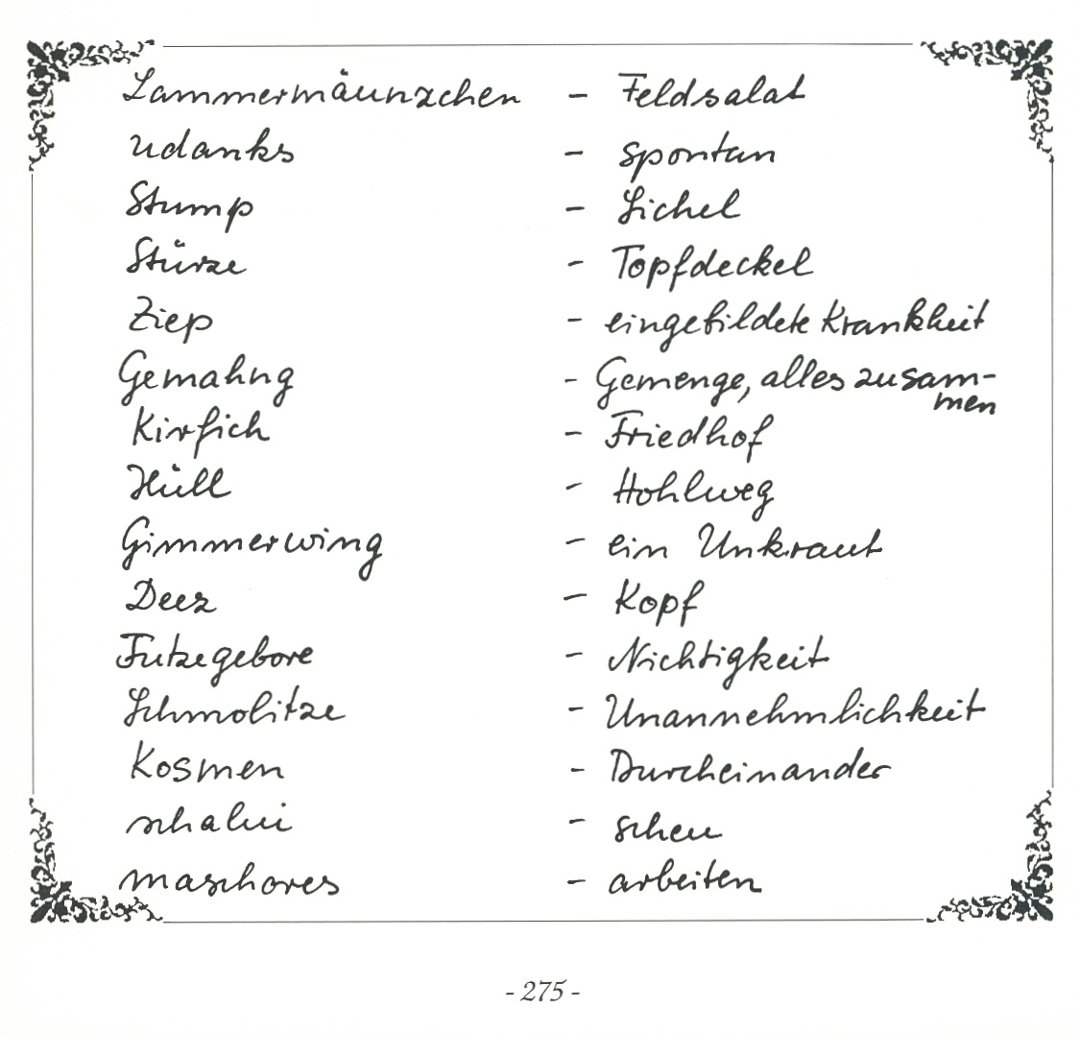 Lammermäunzchen – Feldsalat
udanks – spontan
Stump – Sichel
Stürze – Topfdeckel
Ziep – eingebildete Krankheit
Gemahng – Gemenge, alles zusam-
men
Kirfich – Friedhof
Hüll – Hohlweg
Gimmerwing – ein Unkraut
Deez – Kopf
Futzegebore – Nichtigkeit
Schmolitze – Unannehmlichkeit
Kosmen – Durcheinander
schalui – scheu
maschores – arbeiten
- 275 -